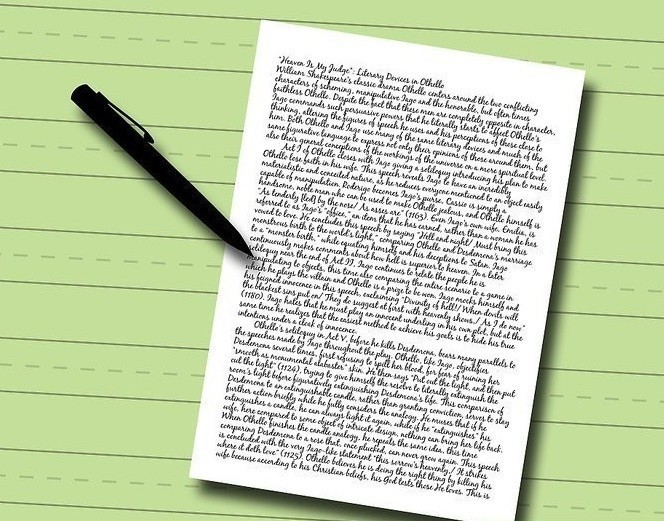 "Heaven Is My Judge": Literary Devices in Othello
William Shakespeare's classic drama Othello centers around the two conflicting
characters of scheming, manipulative Iago and the honorable, but often times
faithless Othello. Despite the fact that these men are completely opposite in character,
Iago commands such persuasive powers that he literally starts to affect Othello's
thinking, altering the figures of speech he uses and his perceptions of those close to
him. Both Othello and Iago use many of the same literary devices and much of the
same figurative language to express not only their opinions of those around them, but
also their general conceptions of the workings of the universe on a more spiritual level.
Act I of Othello closes with Iago giving a soliloquy introducing his plan to make
Othello lose faith in his wife. This speech reveals Iago to have an incredibly
materialistic and conceited nature, as he reduces everyone mentioned to an object easily
capable of manipulation. Roderigo becomes Iago's purse. Cassio is simply a
handsome, noble man who can be used to make Othello jealous, and Othello himself is
"As tenderly [led] by the nose/ As asses are" (1163). Even Iago's own wife, Emilia, is
referred to as Iago's "office," an item that he has earned, rather than a woman he has
vowed to love. He concludes this speech by saying "Hell and night/ Must bring this
monstrous birth to the world's light," comparing Othello and Desdemona's marriage
to a "monster birth," while equating himself and his deceptions to Satan. Iago
continuously makes comments about how hell is superior to heaven. In a later
soliloquy near the end of Act II, Iago continues to relate the people he is
manipulating to objects, this time also comparing the entire scenario to a game in
which he plays the villain and Othello is a prize to be won. Iago mocks himself and
his feigned innocence in this speech, exclaiming "Divinity of hell!/ When devils will
the blackest sins put on/ They do suggest at first with heavenly shows,/ As I do now"
(1180). Iago hates that he must play an innocent underling in his own plot, but at the
same time he realizes that the easiest method to achieve his goals is to hide his true
intentions under a cloak of innocence.
Othello's soliloquy in Act V, before he kills Desdemona, bears many parallels to
the speeches made by Iago throughout the play. Othello, like Iago, objectifies
Desdemona several times, first refusing to spill her blood, for fear of ruining her
"smooth as monumental alabaster" skin. He then says "Put out the light, and then put
out the light" (1124), trying to give himself the resolve to literally extinguish the
room's light before figuratively extinguishing Desdemona's life. This comparison of
Desdemona to an extinguishable candle, rather than granting conviction, serves to stay
further action briefly while he fully considers the analogy. He muses that if he
extinguishes a candle, he can always light it again, while if he "extinguishes" his
wife, here compared to some object of intricate design, nothing can bring her life back.
When Othello finishes the candle analogy, he repeats the same idea, this time
comparing Desdemona to a rose that, once plucked, can never grow again. This speech
is concluded with the very Iago-like statement "this sorrow's heavenly,/ It strikes
where it doth love" (1125). Othello believes he is doing the right thing by killing his
wife because according to his Christian beliefs, his God tests those He loves. This is